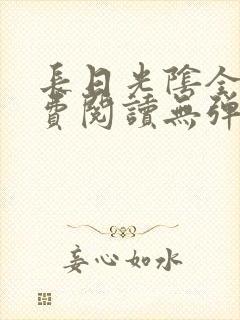 長日光陰全
費閱讀無彈
妄心如水